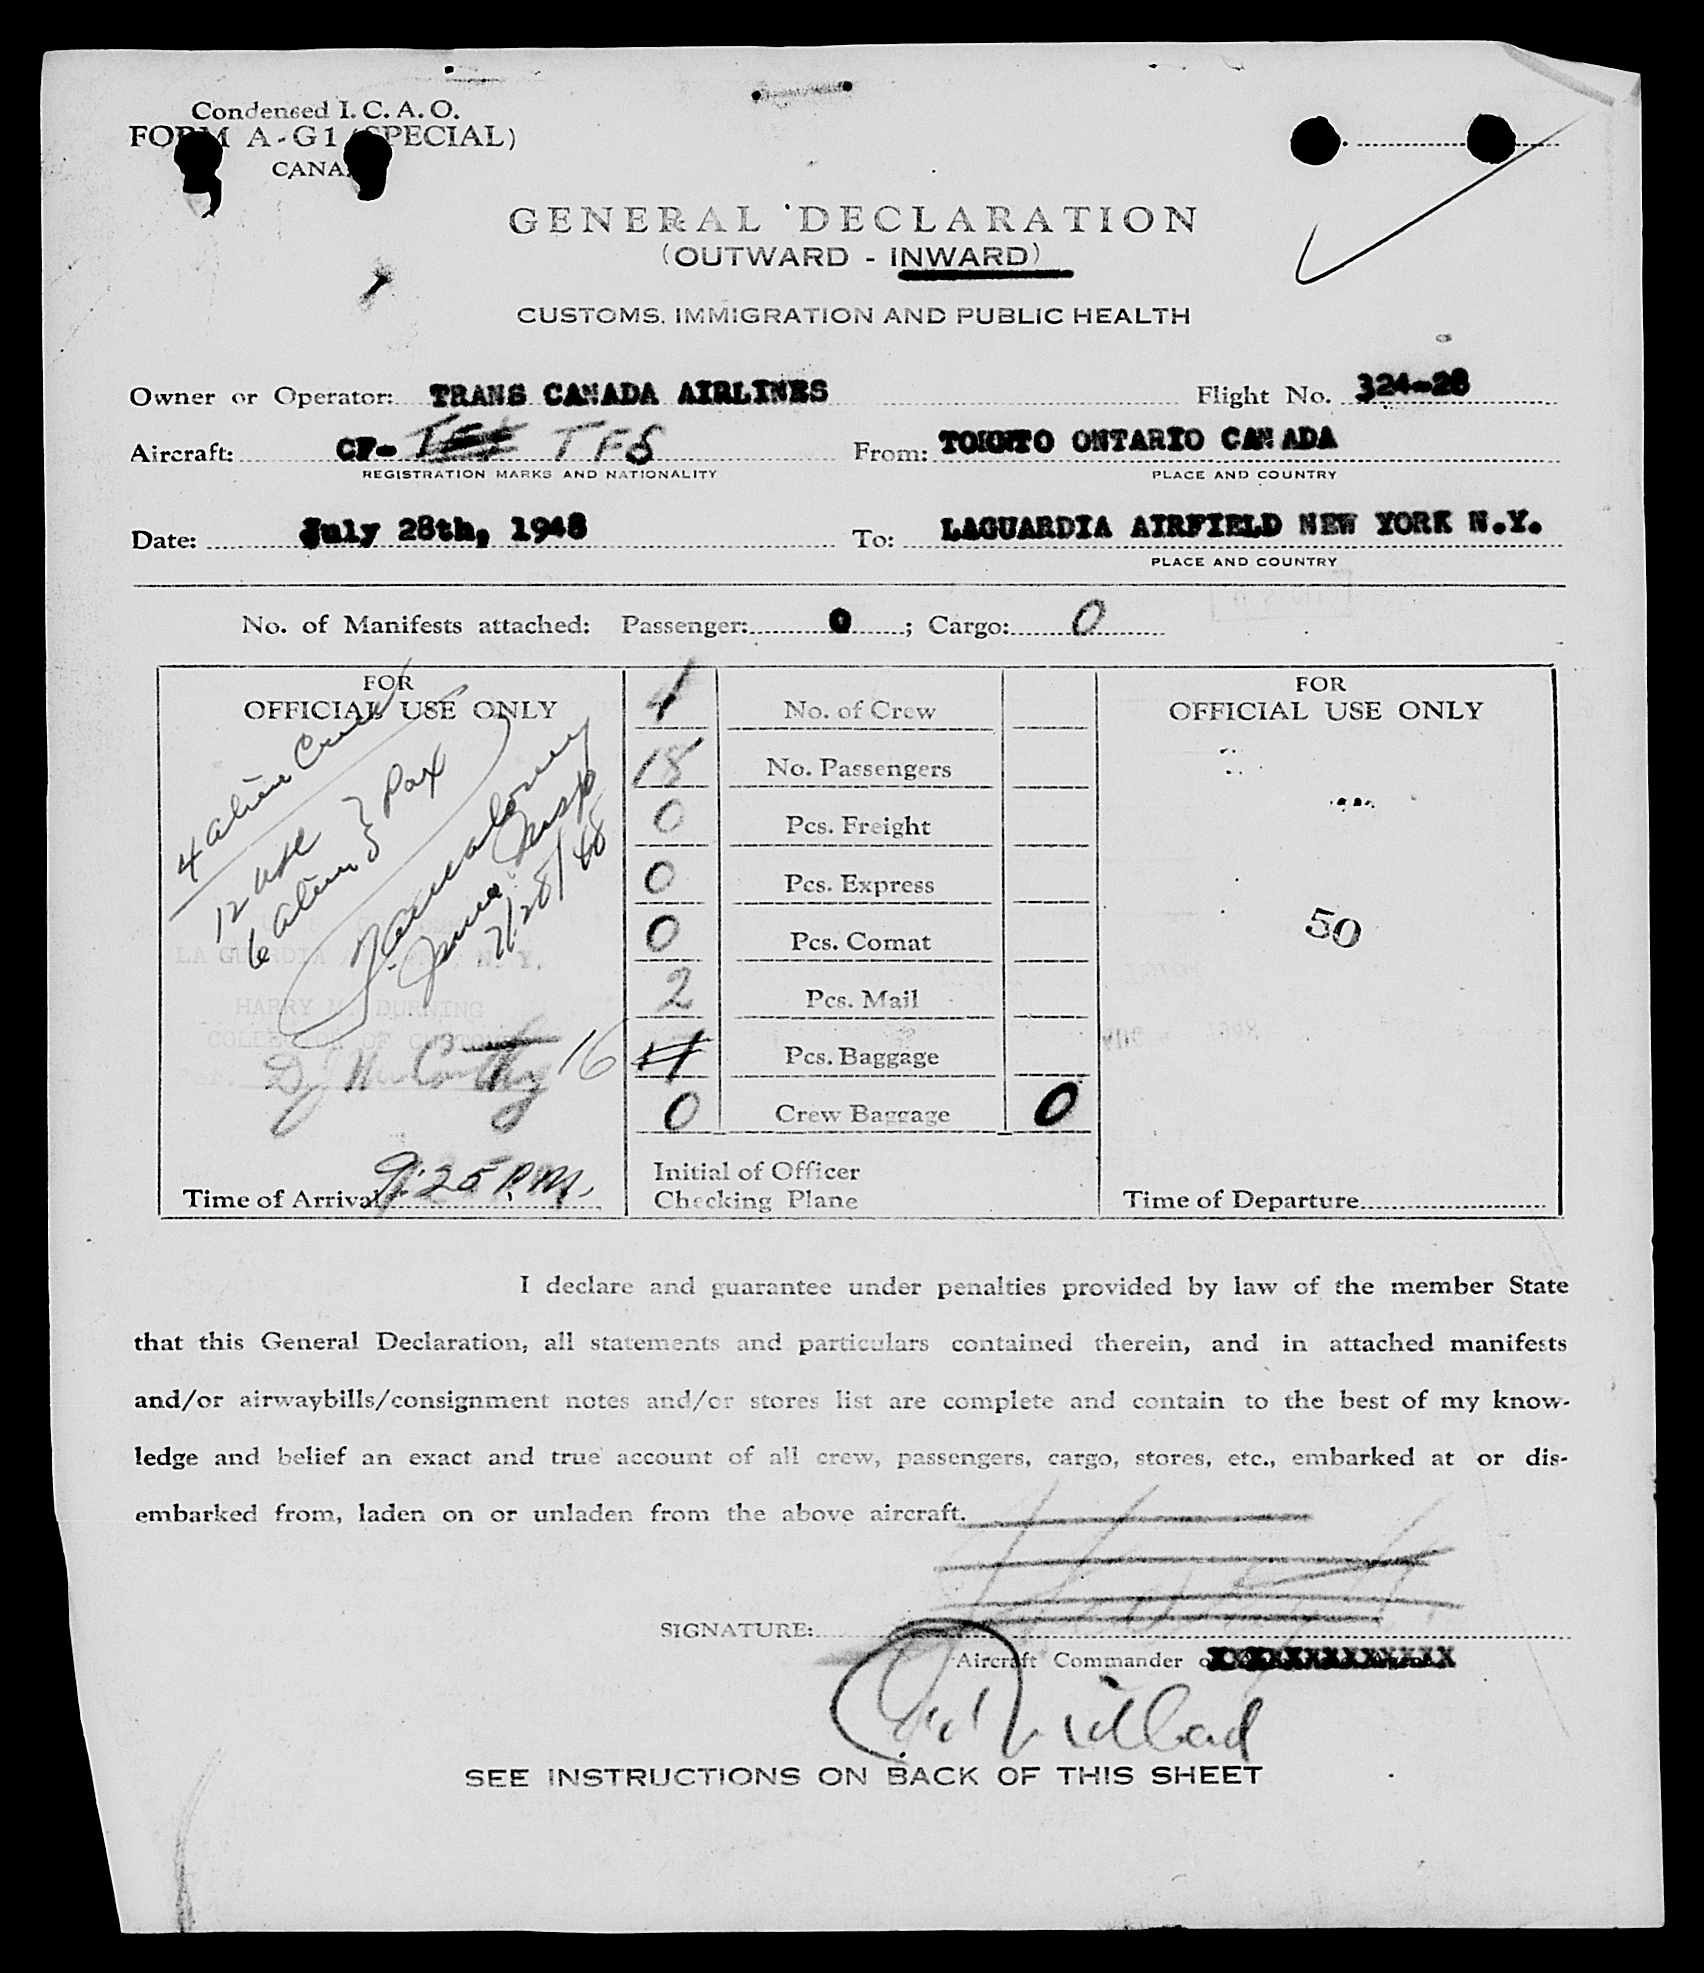 Condensed I. C. A. O.
FORM A-G1 (SPECIAL)
CANA
GENERAL DECLARATION
(OUTWARD - INWARD)
CUSTOMS, IMMIGRATION AND PUBLIC HEALTH
Owner or Operator: TRANS CANADA AIRLINES Flight No. 324-28
Aircraft: CF- TFS From: TORONTO ONTARIO CANADA
REGISTRATION MARKS AND NATIONALITY PLACE AND COUNTRY
Date: July 28th, 1948 To: LAGUARDIA AIRFIELD NEW YORK N.Y.
PLACE AND COUNTRY
No. of Manifests attached: Passenger: 0; Cargo: 0
FOR
OFFICIAL USE ONLY
4 alien Crew
12 USC
6 alien } Pax
Insp
7/28/48
LA GUARDIA N. Y.
HARRY M. DURNING
COLLECTOR OF CUSTOMS
D J McCarthy
Time of Arrival 9:25 P.M.
4 No. of Crew
18 No. Passengers
0 Pcs. Freight
0 Pcs. Express
0 Pcs. Comat
2 Pcs. Mail
16 Pcs. Baggage
0 Crew Baggage 0
Initial of Officer
Checking Plane
FOR
OFFICIAL USE ONLY
50
Time of Departure
I declare and guarantee under penalties provided by law of the member State
that this General Declaration, all statements and particulars contained therein, and in attached manifests
and/or airwaybills/consignment notes and/or stores list are complete and contain to the best of my know-
ledge and belief an exact and true account of all crew, passengers, cargo, stores, etc., embarked at or dis-
embarked from, laden on or unladen from the above aircraft.
SIGNATURE:
Aircraft Commander
SEE INSTRUCTIONS ON BACK OF THIS SHEET